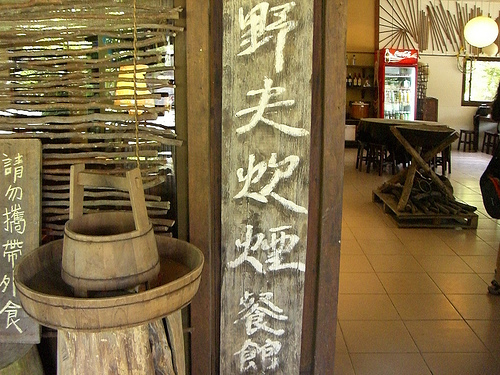 野夫炊煙餐館
請勿攜帶外食